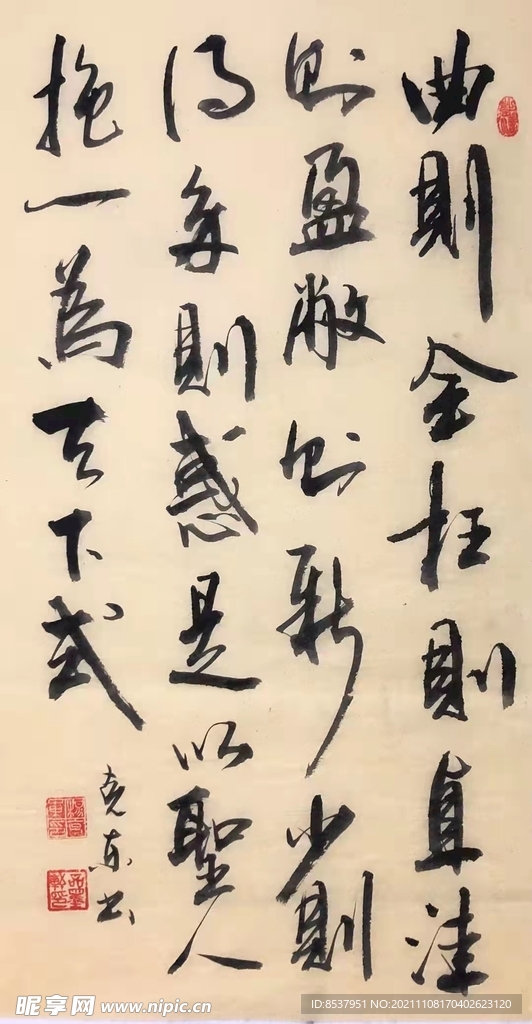 曲則全枉則直洼
則盈敝則新少則
得多則惑是以聖人
抱一為天下式
克东书
昵享网 www.nipic.cn
ID:8537951 NO:20211108170402623120